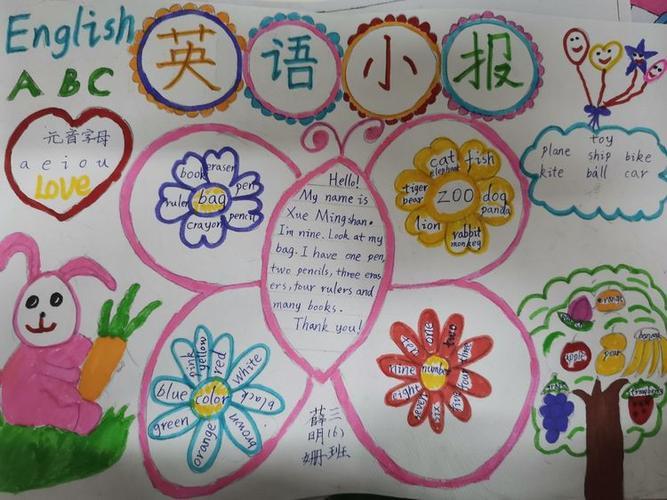 English
英语小报
A B C
元音字母
a e i o u
LOVE
book
eraser
pen
pencil
crayon
ruler
bag
Hello!
My name is
Xue Mingshan.
I'm nine. Look at my
bag. I have one pen,
two pencils, three eras
ers, four rulers and
many books.
Thank you!
cat
elephant
fish
dog
panda
rabbit
monkey
lion
tiger
bear
ZOO
toy
plane ship bike
kite ball car
pink
yellow
red
white
black
brown
orange
green
blue
color
zero
one
two
three
four
five
six
seven
eight
nine
number
orange
apple
pear
banana
薛明姗
三(6)班